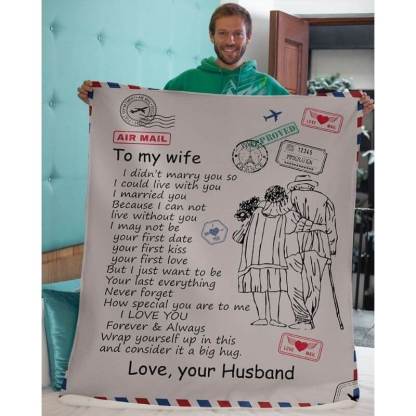 AIR MAIL
APPROVED
LOVE MAIL
12345
To my wife
I didn't marry you so
I could live with you
I married you
Because I can not
live without you
I may not be
your first date
your first kiss
your first love
But I just want to be
Your last everything
Never forget
How special you are to me
I LOVE YOU
Forever & Always
Wrap yourself up in this
and consider it a big hug.
LOVE MAIL
Love, your Husband